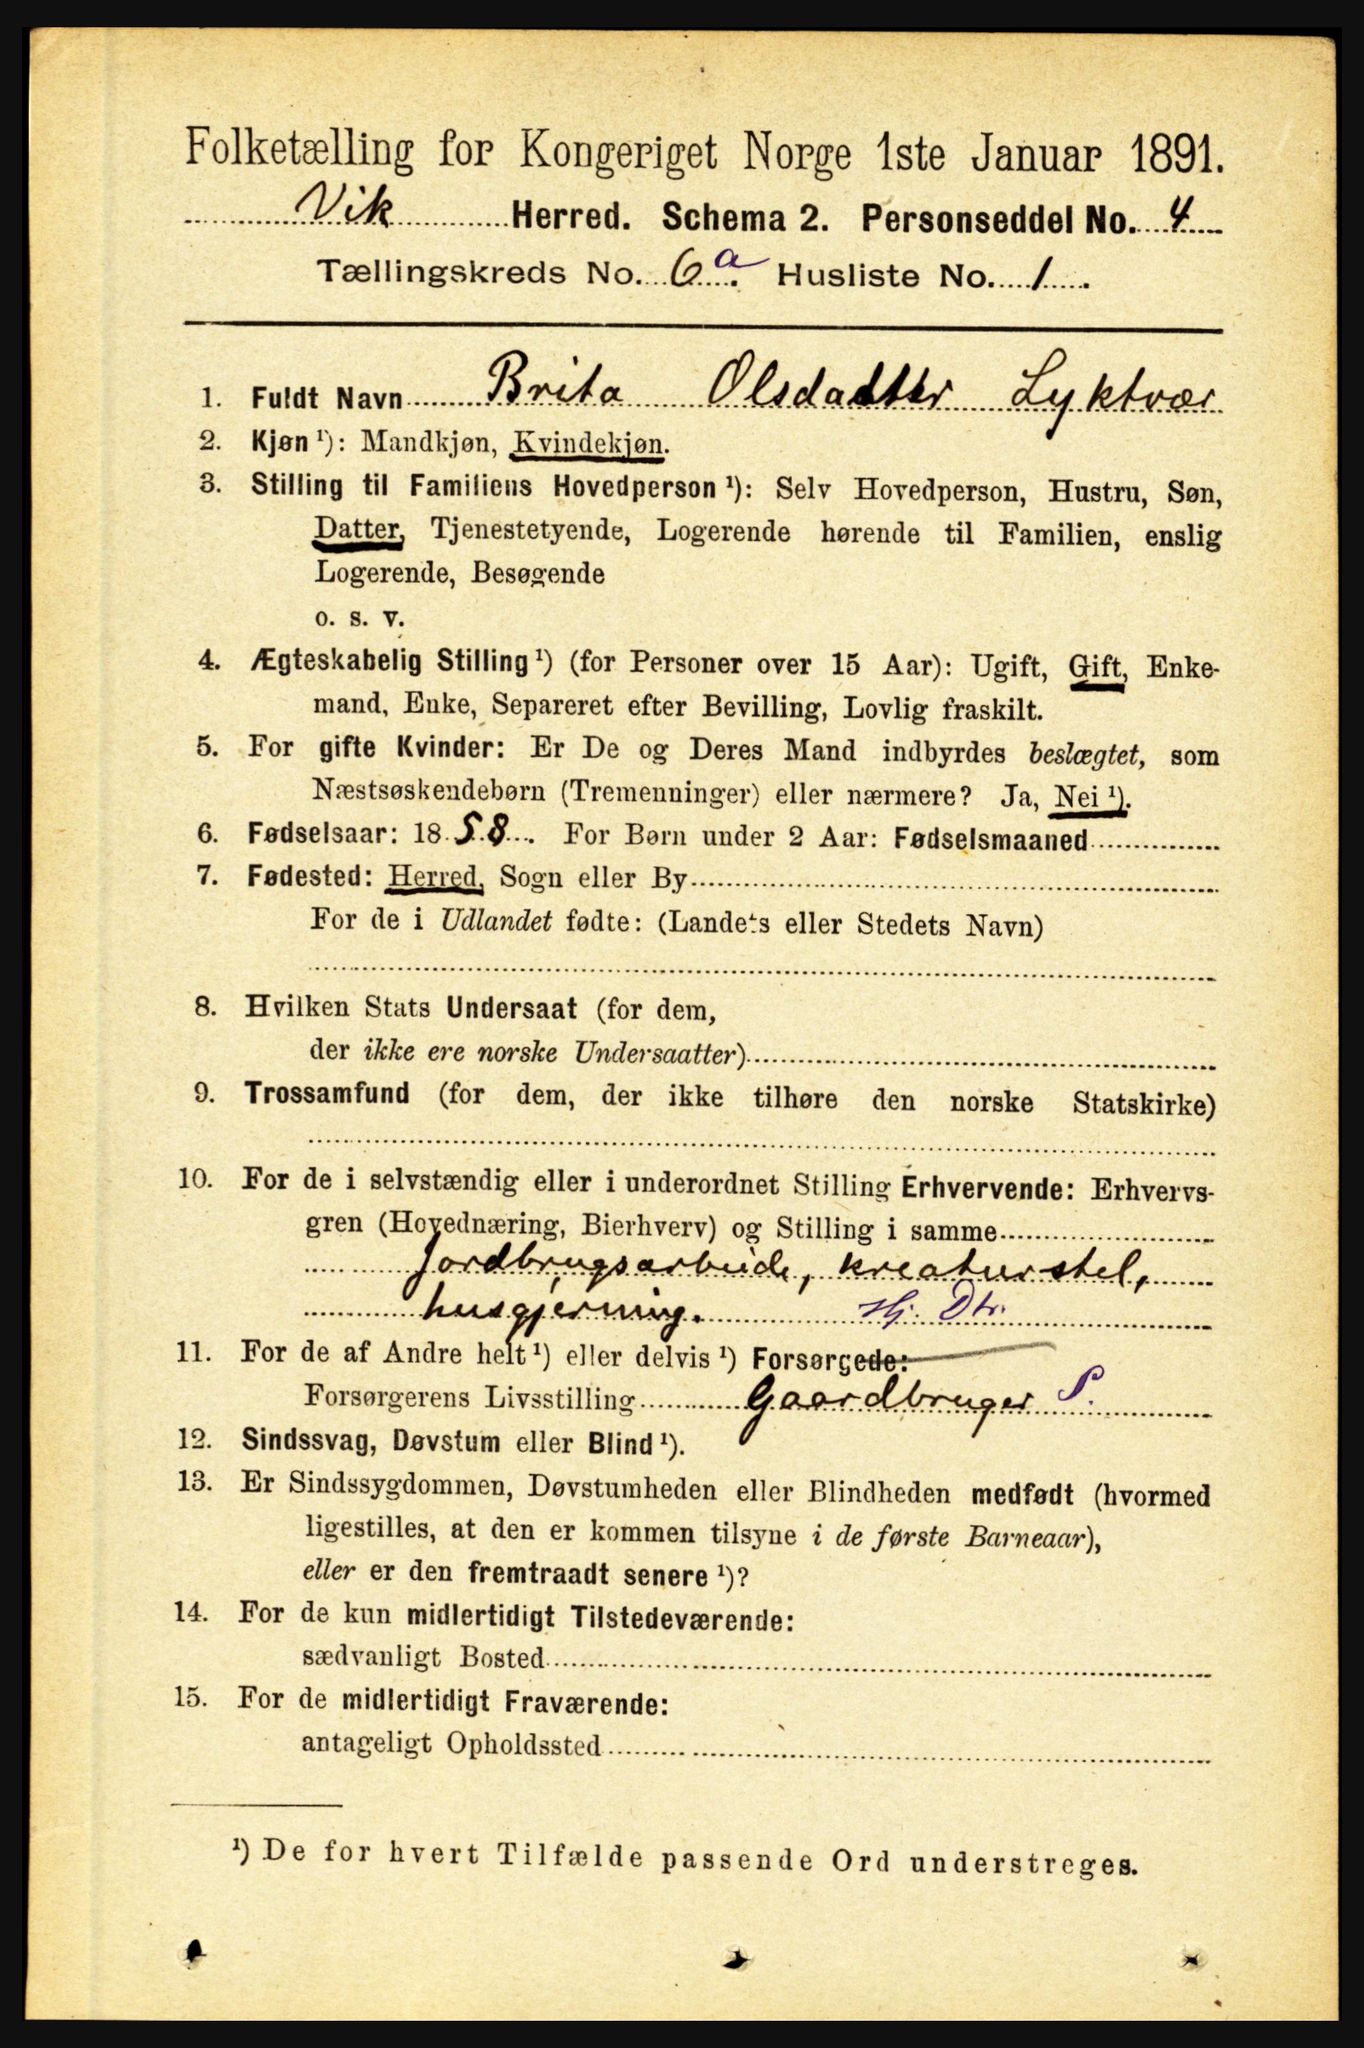 Folketælling for Kongeriget Norge 1ste Januar 1891.
Vik Herred. Schema 2. Personseddel No. 4
Tællingskreds No. 6 a. Husliste No. 1.
1. Fuldt Navn Brita Olsdatter Lyktvær
2. Kjøn ¹): Mandkjøn, Kvindekjøn.
3. Stilling til Familiens Hovedperson ¹): Selv Hovedperson, Hustru, Søn,
Datter, Tjenestetyende, Logerende hørende til Familien, enslig
Logerende, Besøgende
o. s. v.
4. Ægteskabelig Stilling ¹) (for Personer over 15 Aar): Ugift, Gift, Enke-
mand, Enke, Separeret efter Bevilling, Lovlig fraskilt.
5. For gifte Kvinder: Er De og Deres Mand indbyrdes beslægtet, som
Næstsøskendebørn (Tremenninger) eller nærmere? Ja, Nei ¹).
6. Fødselsaar: 1858. For Børn under 2 Aar: Fødselsmaaned
7. Fødested: Herred, Sogn eller By
For de i Udlandet fødte: (Landets eller Stedets Navn)
8. Hvilken Stats Undersaat (for dem,
der ikke ere norske Undersaatter)
9. Trossamfund (for dem, der ikke tilhøre den norske Statskirke)
10. For de i selvstændig eller i underordnet Stilling Erhvervende: Erhvervs-
gren (Hovednæring, Bierhverv) og Stilling i samme
Jordbrugsarbeide, kreaturstel,
husgjerning. Hj. Dtr.
11. For de af Andre helt ¹) eller delvis ¹) Forsørgede:
Forsørgerens Livsstilling Gaardbruger S.
12. Sindssvag, Døvstum eller Blind ¹).
13. Er Sindssygdommen, Døvstumheden eller Blindheden medfødt (hvormed
ligestilles, at den er kommen tilsyne i de første Barneaar),
eller er den fremtraadt senere ¹)?
14. For de kun midlertidigt Tilstedeværende:
sædvanligt Bosted
15. For de midlertidigt Fraværende:
antageligt Opholdssted
¹) De for hvert Tilfælde passende Ord understreges.